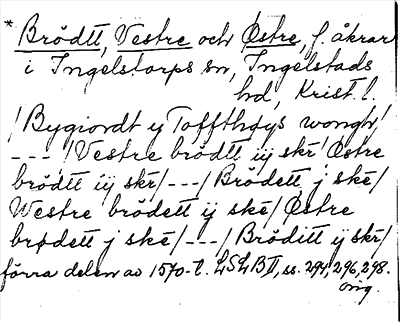 * Brödtt, Vestre och Østre, f. åkrar
i Ingelstorps sn, Ingelstads
hd, Krist. l.
/Bygiordt y Toffthøys wongh/
--- /Vestre brödtt iij skr/ Østre
brödtt iij skr/ --- / Brödett j skē/
Westre brödett ij skē/ Østre
brødett j skē/ --- / Bröditt ij skr/
förra delen av 1570-t. LSLB II, ss. 294, 296, 298.
orig.